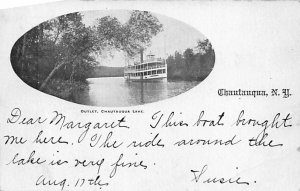 OUTLET, CHAUTAUQUA LAKE.
Chautauqua, N. Y.
Dear Margaret This boat brought
me here. The ride around the
lake is very fine.
Aug. 17th Susie.